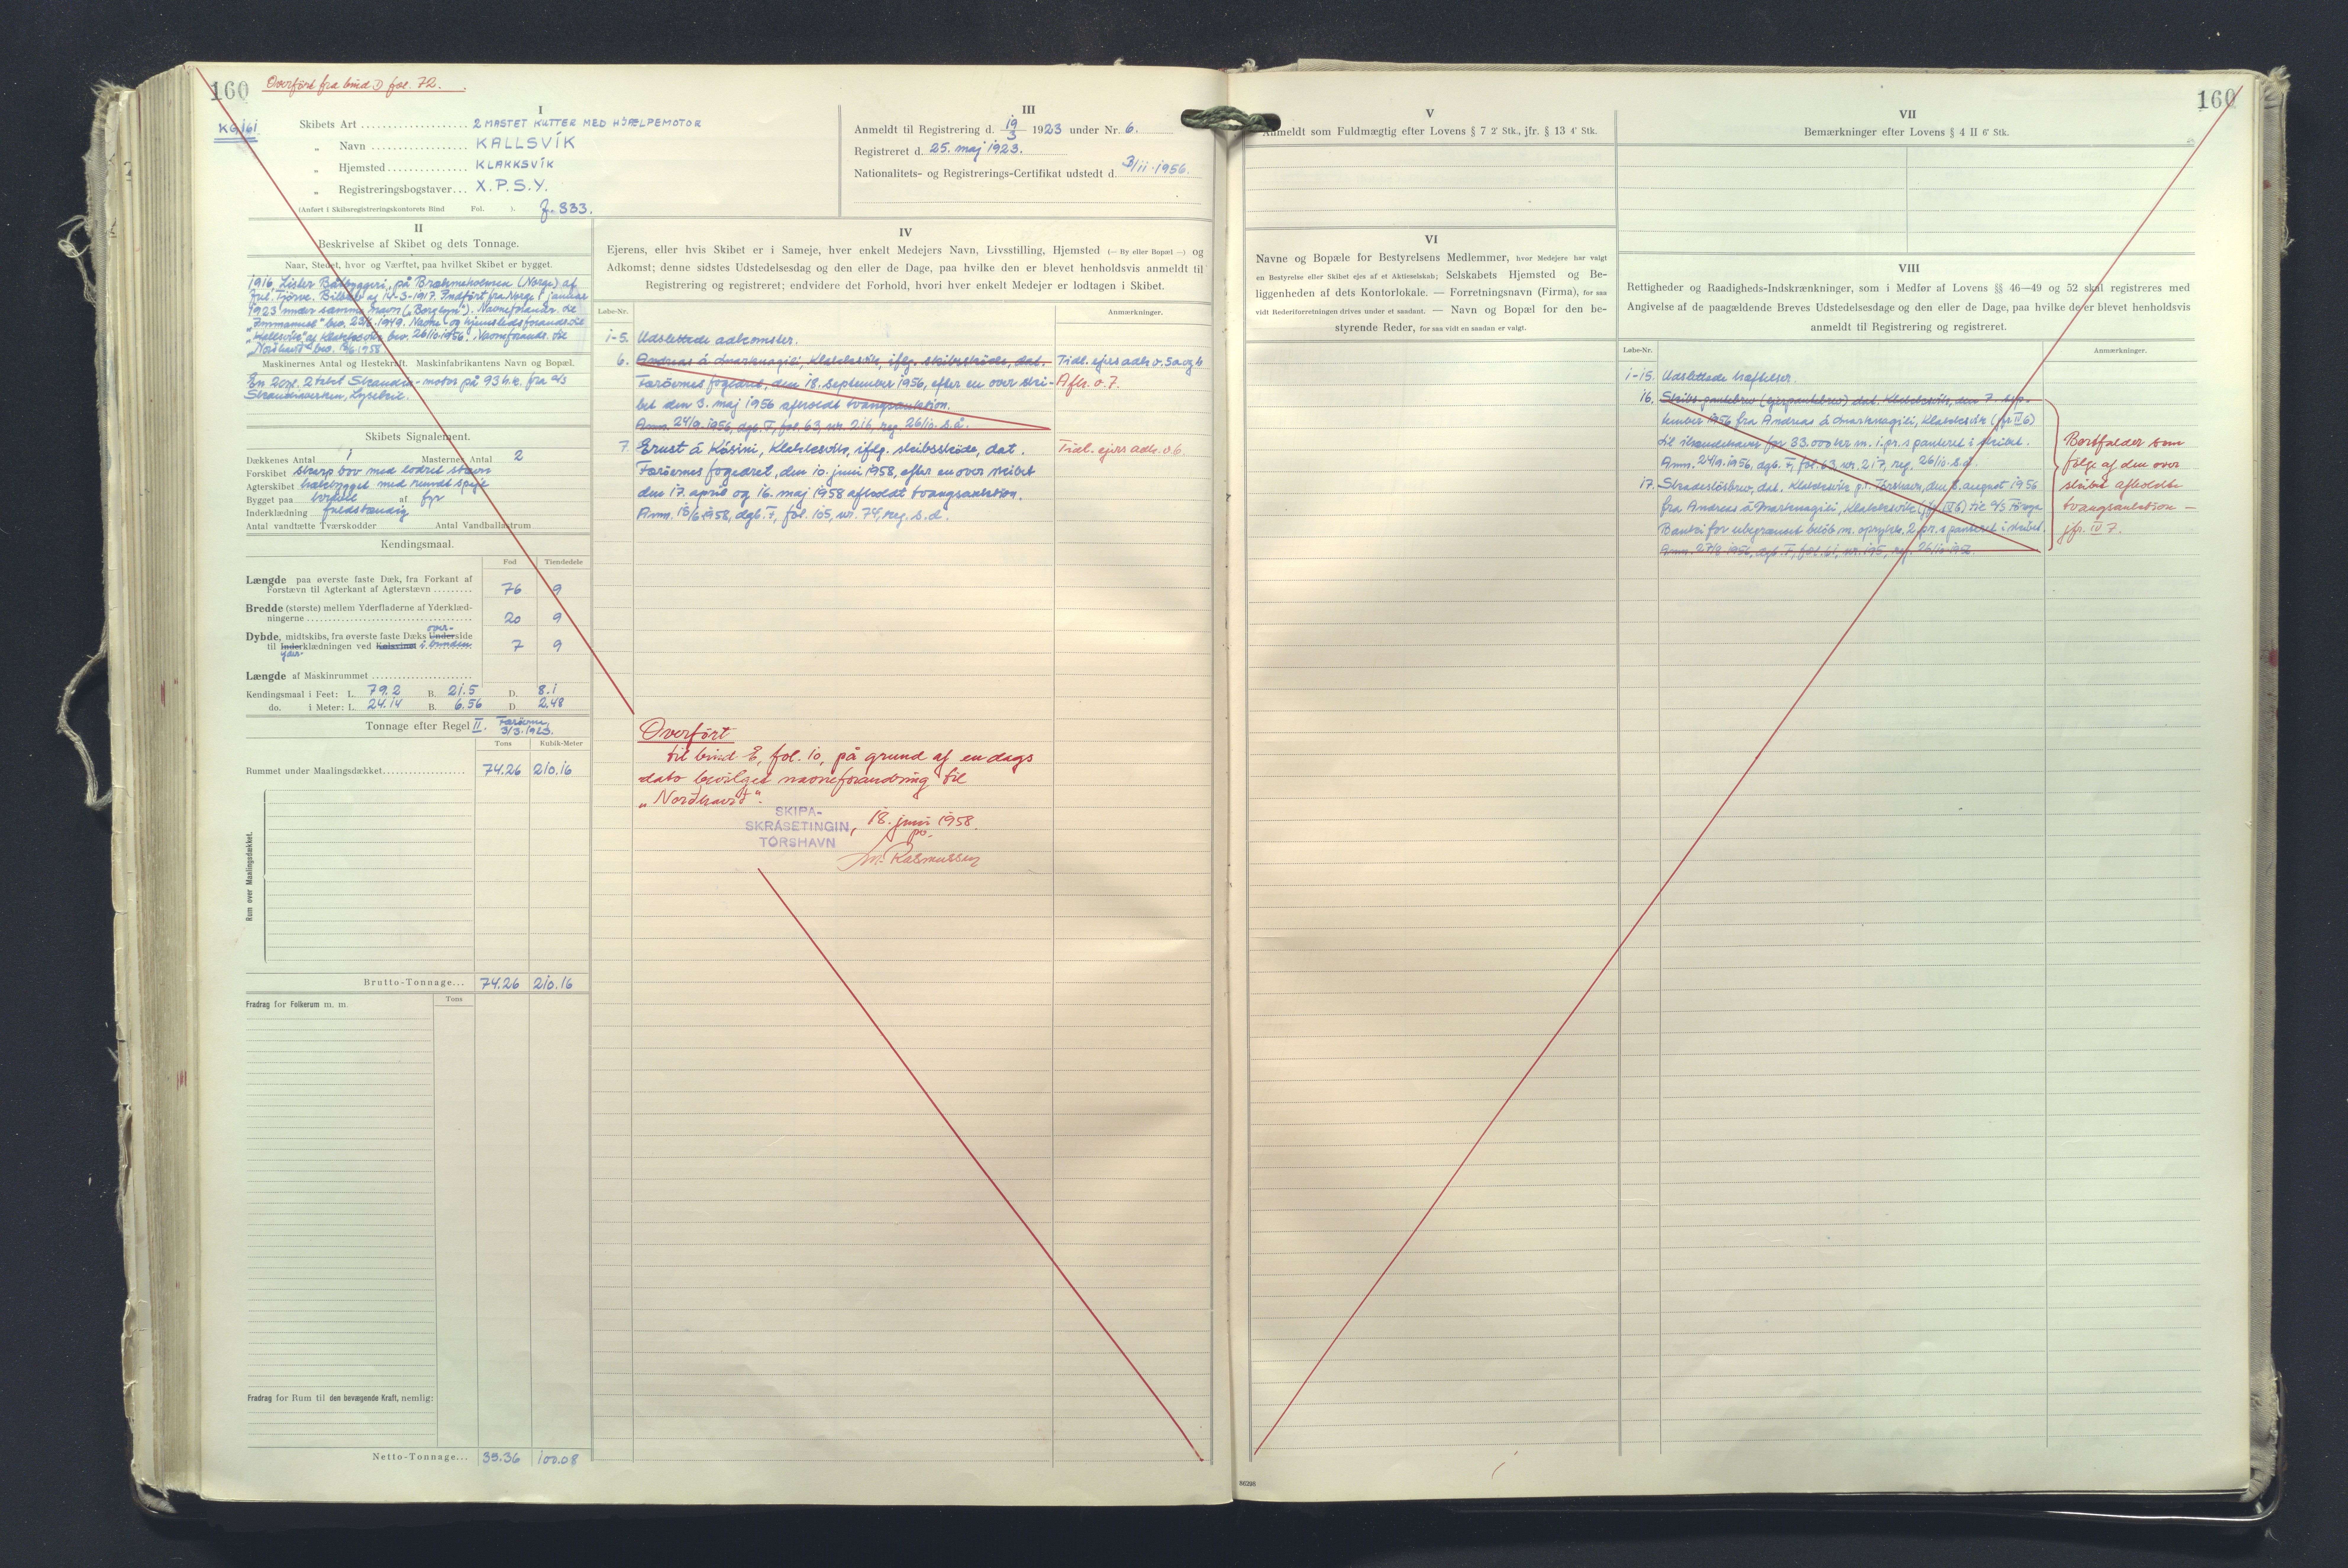 160
Overført fra bind D fol. 72.
KG 161
I
Skibets Art 2 MASTET KUTTER MED HJÆLPEMOTOR
„ Navn KALLSVÍK
„ Hjemsted KLAKKSVÍK
„ Registreringsbogstaver X.P.S.Y.
(Anført i Skibsregistreringskontorets Bind Fol. ). 333.
III
Anmeldt til Registrering d. 19/3 1923 under Nr. 6.
Registreret d. 25. maj 1923.
Nationalitets- og Registrerings-Certifikat udstedt d. 3/11.1956.
II
Beskrivelse af Skibet og dets Tonnage.
Naar, Stedet, hvor og Værftet, paa hvilket Skibet er bygget.
1916, Lister Baatbyggeri, på Brækneholmen (Norge) af
Jul. Fjörve. Bilbrev af 14-3-1917. Indført fra Norge i januar
1923 under samme navn („Borglyn"). Navneforandr. til
„Immanuel" bev. 1949. Navne- og hjemstedsforandr. til
„Kallsvík" af Klakksvík bev. 26/10.1956. Navneforandr. til
„Norðhavið" bev. 1958
Maskinernes Antal og Hestekraft. Maskinfabrikantens Navn og Bopæl.
En 2cyl. 2takt Skandia-motor på 93 h.k. fra a/s
Skandiaverken, Lysekil.
Skibets Signalement.
Dækkenes Antal 1 Masternes Antal 2
Forskibet skarp bov med lodret stævn
Agterskibet hækbygget med rundt spejl
Bygget paa kravel af fyr
Inderklædning fuldstændig
Antal vandtætte Tværskodder Antal Vandballastrum
Kendingsmaal.
Fod Tiendedele
Længde paa øverste faste Dæk, fra Forkant af
Forstævn til Agterkant af Agterstævn 76 9
Bredde (største) mellem Yderfladerne af Yderklæd-
ningerne 20 9
over-
Dybde, midtskibs, fra øverste faste Dæks Underside
til Inderklædningen ved Kølsvinet i bunden 7 9
yder-
Længde af Maskinrummet
Kendingsmaal i Feet: L. 79.2 B. 21.5 D. 8.1
do. i Meter: L. 24.14 B. 6.56 D. 2.48
Tonnage efter Regel II. Færöerne, 3/3.1923.
Tons Kubik-Meter
Rummet under Maalingsdækket 74.26 210.16
Rum over Maalingsdækket.
Brutto-Tonnage... 74.26 210.16
Fradrag for Folkerum m. m. Tons
Fradrag for Rum til den bevægende Kraft, nemlig:
Netto-Tonnage... 35.36 100.08
IV
Ejerens, eller hvis Skibet er i Sameje, hver enkelt Medejers Navn, Livsstilling, Hjemsted (— By eller Bopæl —) og
Adkomst; denne sidstes Udstedelsesdag og den eller de Dage, paa hvilke den er blevet henholdsvis anmeldt til
Registrering og registreret; endvidere det Forhold, hvori hver enkelt Medejer er lodtagen i Skibet.
Løbe-Nr. Anmærkninger.
1-5. Udslettede adkomster.
6. Andreas á Marknagili, Klakksvík, iflg. skibsskøde, dat. Tidl. ejers adk. o. 5a og b
Færöernes fogedret, den 18. september 1956, efter en over ski- Afls. o. 7.
bet den 3. maj 1956 afholdt tvangsauktion.
Anm. 24/9.1956, dgb. F, fol. 63, nr. 216, reg. 26/10. s.å.
7. Ernst á Kósini, Klakksvík, iflg. skibsskøde, dat. Tidl. ejers adk. o. 6.
Færöernes fogedret, den 10. juni 1958, efter en over skibet
den 17. april og 16. maj 1958 afholdt tvangsauktion.
Anm. 18/6.1958, dgb. F, fol. 105, nr. 74, reg. s.d.
Overført
til bind E, fol. 10, på grund af en dags
dato bevilget navneforandring til
„Norðhavið".
SKIPA-
SKRÁSETINGIN, 18. juni 1958.
TÓRSHAVN
Rasmussen
160
V
Anmeldt som Fuldmægtig efter Lovens § 7 2' Stk., jfr. § 13 4' Stk.
VI
Navne og Bopæle for Bestyrelsens Medlemmer, hvor Medejere har valgt
en Bestyrelse eller Skibet ejes af et Aktieselskab; Selskabets Hjemsted og Be-
liggenheden af dets Kontorlokale. — Forretningsnavn (Firma), for saa
vidt Rederiforretningen drives under et saadant. — Navn og Bopæl for den be-
styrende Reder, for saa vidt en saadan er valgt.
VII
Bemærkninger efter Lovens § 4 II 6' Stk.
VIII
Rettigheder og Raadigheds-Indskrænkninger, som i Medfør af Lovens §§ 46—49 og 52 skal registreres med
Angivelse af de paagældende Breves Udstedelsesdag og den eller de Dage, paa hvilke de er blevet henholdsvis
anmeldt til Registrering og registreret.
Løbe-Nr. Anmærkninger.
1-15. Udslettede hæftelser.
16. Skibs-pantebrev (ejerpantebrev) dat. Klakksvík, den 7. sep-
tember 1956 fra Andreas á Marknagili, Klakksvík (jfr IV 6)
til ihændehaver for 33.000 kr m. 1.pr.s panteret i skibet.
Anm. 24/9.1956, dgb. F, fol. 63, nr. 217, reg. 26/10. s.å.
17. Skadesløsbrev, dat. Klakksvík p.t. Tórshavn, den 8. august 1956
fra Andreas á Marknagili, Klakksvík (jfr IV 6) til A/S Føroya
Banki for ubegrænset beløb m. oprykk. 2 pr.s panteret i skibet.
Anm. 27/8 1956, dgb. F, fol. 61, nr. 195, reg. 26/10.1956.
Bortfalder som
følge af den over
skibet afholdte
tvangsauktion —
jfr. IV 7.
86298